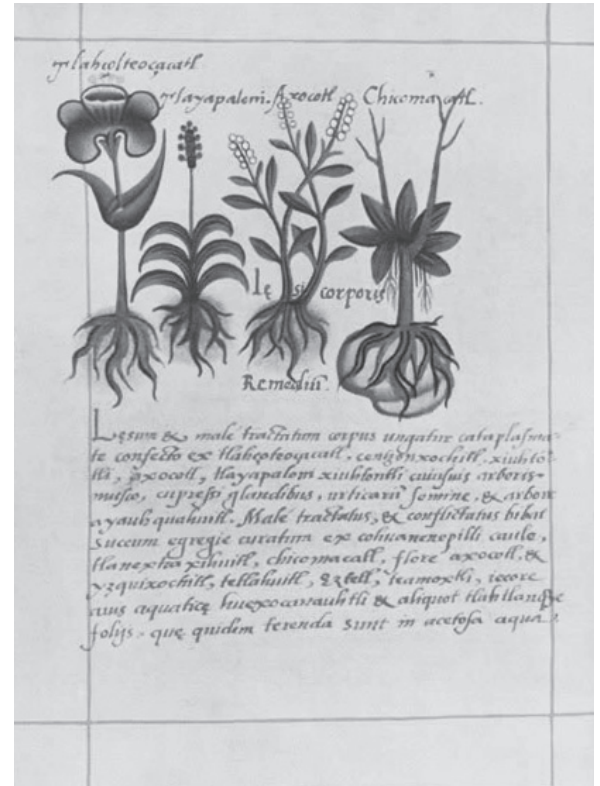 Tlahçolteoçacatl.
Tlayapaloni. Axocotl. Chicomacatl.
Lę si corporis
Remediū.
Lęsum & male tractatum corpus ungatur cataplasma-
te confecto ex tlahçolteoçacatl, centzonxochitl, xiuhto-
tli, axocotl, tlayapaloni xiuhtontli cuiusuis arboris
musco, cupressi glandibus, urticarū semine, & arbore
ayauhquahuitl. Male tractatus, & conflictatus bibat
succum egregie curatum ex cohuanenepilli caule,
tlanextia xihuitl, chicomacatl, flore axocotl, &
yzquixochitl, tetlahuitl, eztetl, teamoxtli, iecore
auis aquaticę huexocanauhtli & aliquot tlahtlanquaye
folijs. quę quidem terenda sunt in acetosa aqua.